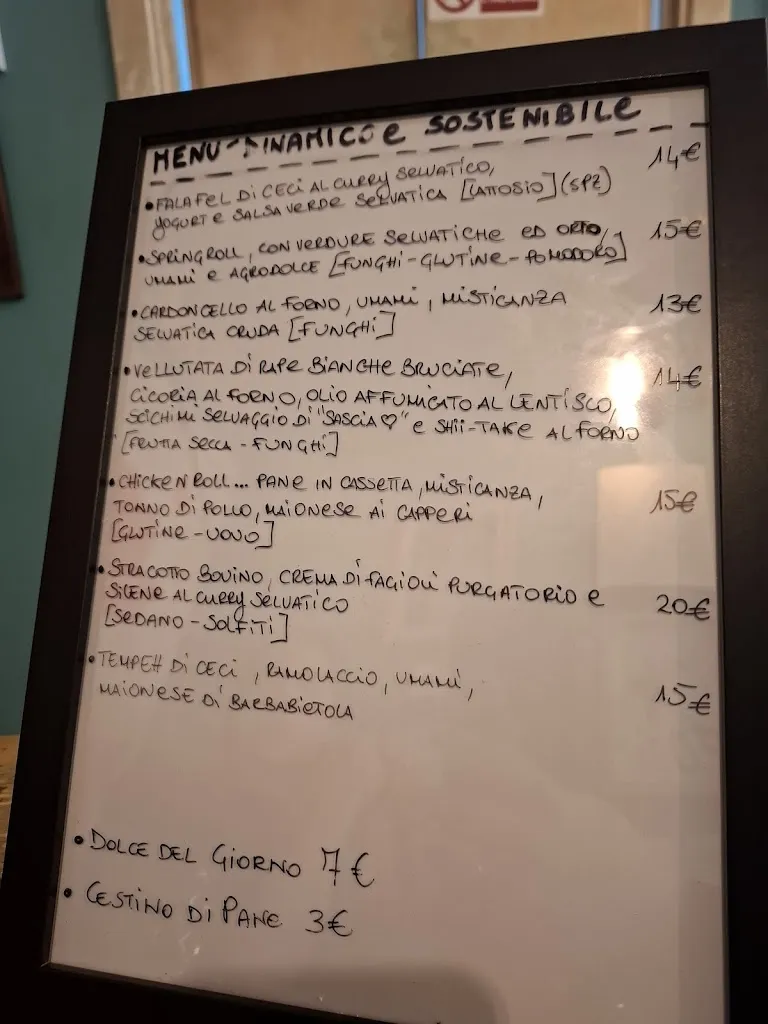 MENU DINAMICO e SOSTENIBILE
• FALAFEL DI CECI AL CURRY SELVATICO, 14€
YOGURT e SALSA VERDE SELVATICA [LATTOSIO] (SPZ)
• SPRING ROLL, CON VERDURE SELVATICHE ED ORTO, 15€
UMAMI e AGRODOLCE [FUNGHI-GLUTINE-POMODORO]
• CARDONCELLO AL FORNO, UMAMI, MISTICANZA 13€
SELVATICA CRUDA [FUNGHI]
• VELLUTATA DI RAPE BIANCHE BRUCIATE, 14€
CICORIA AL FORNO, OLIO AFFUMICATO AL LENTISCO,
SCICHIMI SELVAGGIO DI "SASCIA♡" e SHII-TAKE AL FORNO
[FRUTTA SECCA - FUNGHI]
• CHICKEN ROLL... PANE IN CASSETTA, MISTICANZA, 15€
TONNO DI POLLO, MAIONESE AI CAPPERI
[GLUTINE-UOVO]
• STRACOTTO BOVINO, CREMA DI FAGIOLI PURGATORIO e 20€
SILENE AL CURRY SELVATICO
[SEDANO-SOLFITI]
• TEMPEH DI CECI, RAMOLACCIO, UMAMI, 15€
MAIONESE DI BARBABIETOLA
• DOLCE DEL GIORNO 7€
• CESTINO DI PANE 3€